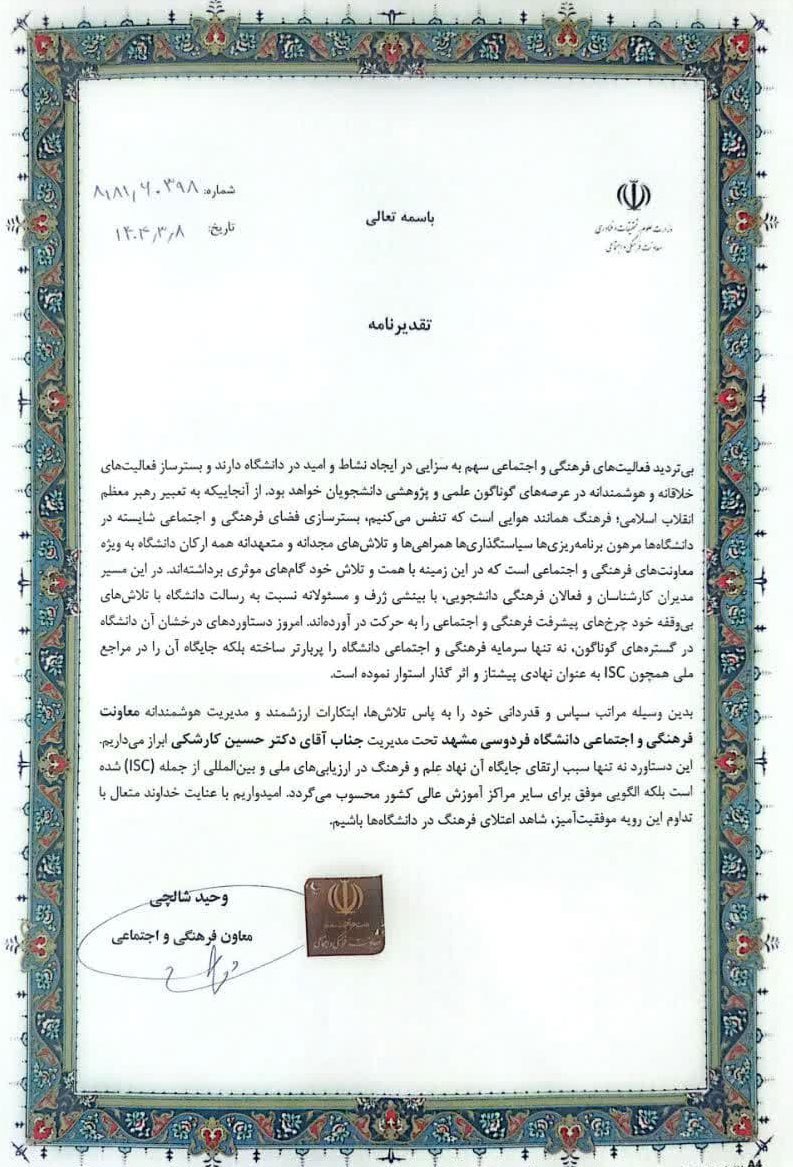 شماره: ۸۱۸۱٬۶۰۳۹۸
باسمه تعالی
تاریخ: ۱۴۰۴٫۳٫۸
وزارت علوم، تحقیقات و فناوری
معاونت فرهنگی و اجتماعی
تقدیرنامه
بی‌تردید فعالیت‌های فرهنگی و اجتماعی سهم به سزایی در ایجاد نشاط و امید در دانشگاه دارند و بسترساز فعالیت‌های
خلاقانه و هوشمندانه در عرصه‌های گوناگون علمی و پژوهشی دانشجویان خواهد بود. از آنجاییکه به تعبیر رهبر معظم
انقلاب اسلامی؛ فرهنگ همانند هوایی است که تنفس می‌کنیم، بسترسازی فضای فرهنگی و اجتماعی شایسته در
دانشگاه‌ها مرهون برنامه‌ریزی‌ها سیاستگذاری‌ها همراهی‌ها و تلاش‌های مجدانه و متعهدانه همه ارکان دانشگاه به ویژه
معاونت‌های فرهنگی و اجتماعی است که در این زمینه با همت و تلاش خود گام‌های موثری برداشته‌اند. در این مسیر
مدیران کارشناسان و فعالان فرهنگی دانشجویی، با بینشی ژرف و مسئولانه نسبت به رسالت دانشگاه با تلاش‌های
بی‌وقفه خود چرخ‌های پیشرفت فرهنگی و اجتماعی را به حرکت در آورده‌اند. امروز دستاوردهای درخشان آن دانشگاه
در گستره‌های گوناگون، نه تنها سرمایه فرهنگی و اجتماعی دانشگاه را پربارتر ساخته بلکه جایگاه آن را در مراجع
ملی همچون ISC به عنوان نهادی پیشتاز و اثر گذار استوار نموده است.
بدین وسیله مراتب سپاس و قدردانی خود را به پاس تلاش‌ها، ابتکارات ارزشمند و مدیریت هوشمندانه معاونت
فرهنگی و اجتماعی دانشگاه فردوسی مشهد تحت مدیریت جناب آقای دکتر حسین کارشکی ابراز می‌داریم.
این دستاورد نه تنها سبب ارتقای جایگاه آن نهاد علم و فرهنگ در ارزیابی‌های ملی و بین‌المللی از جمله (ISC) شده
است بلکه الگویی موفق برای سایر مراکز آموزش عالی کشور محسوب می‌گردد. امیدواریم با عنایت خداوند متعال با
تداوم این رویه موفقیت‌آمیز، شاهد اعتلای فرهنگ در دانشگاه‌ها باشیم.
وحید شالچی
معاون فرهنگی و اجتماعی
A4